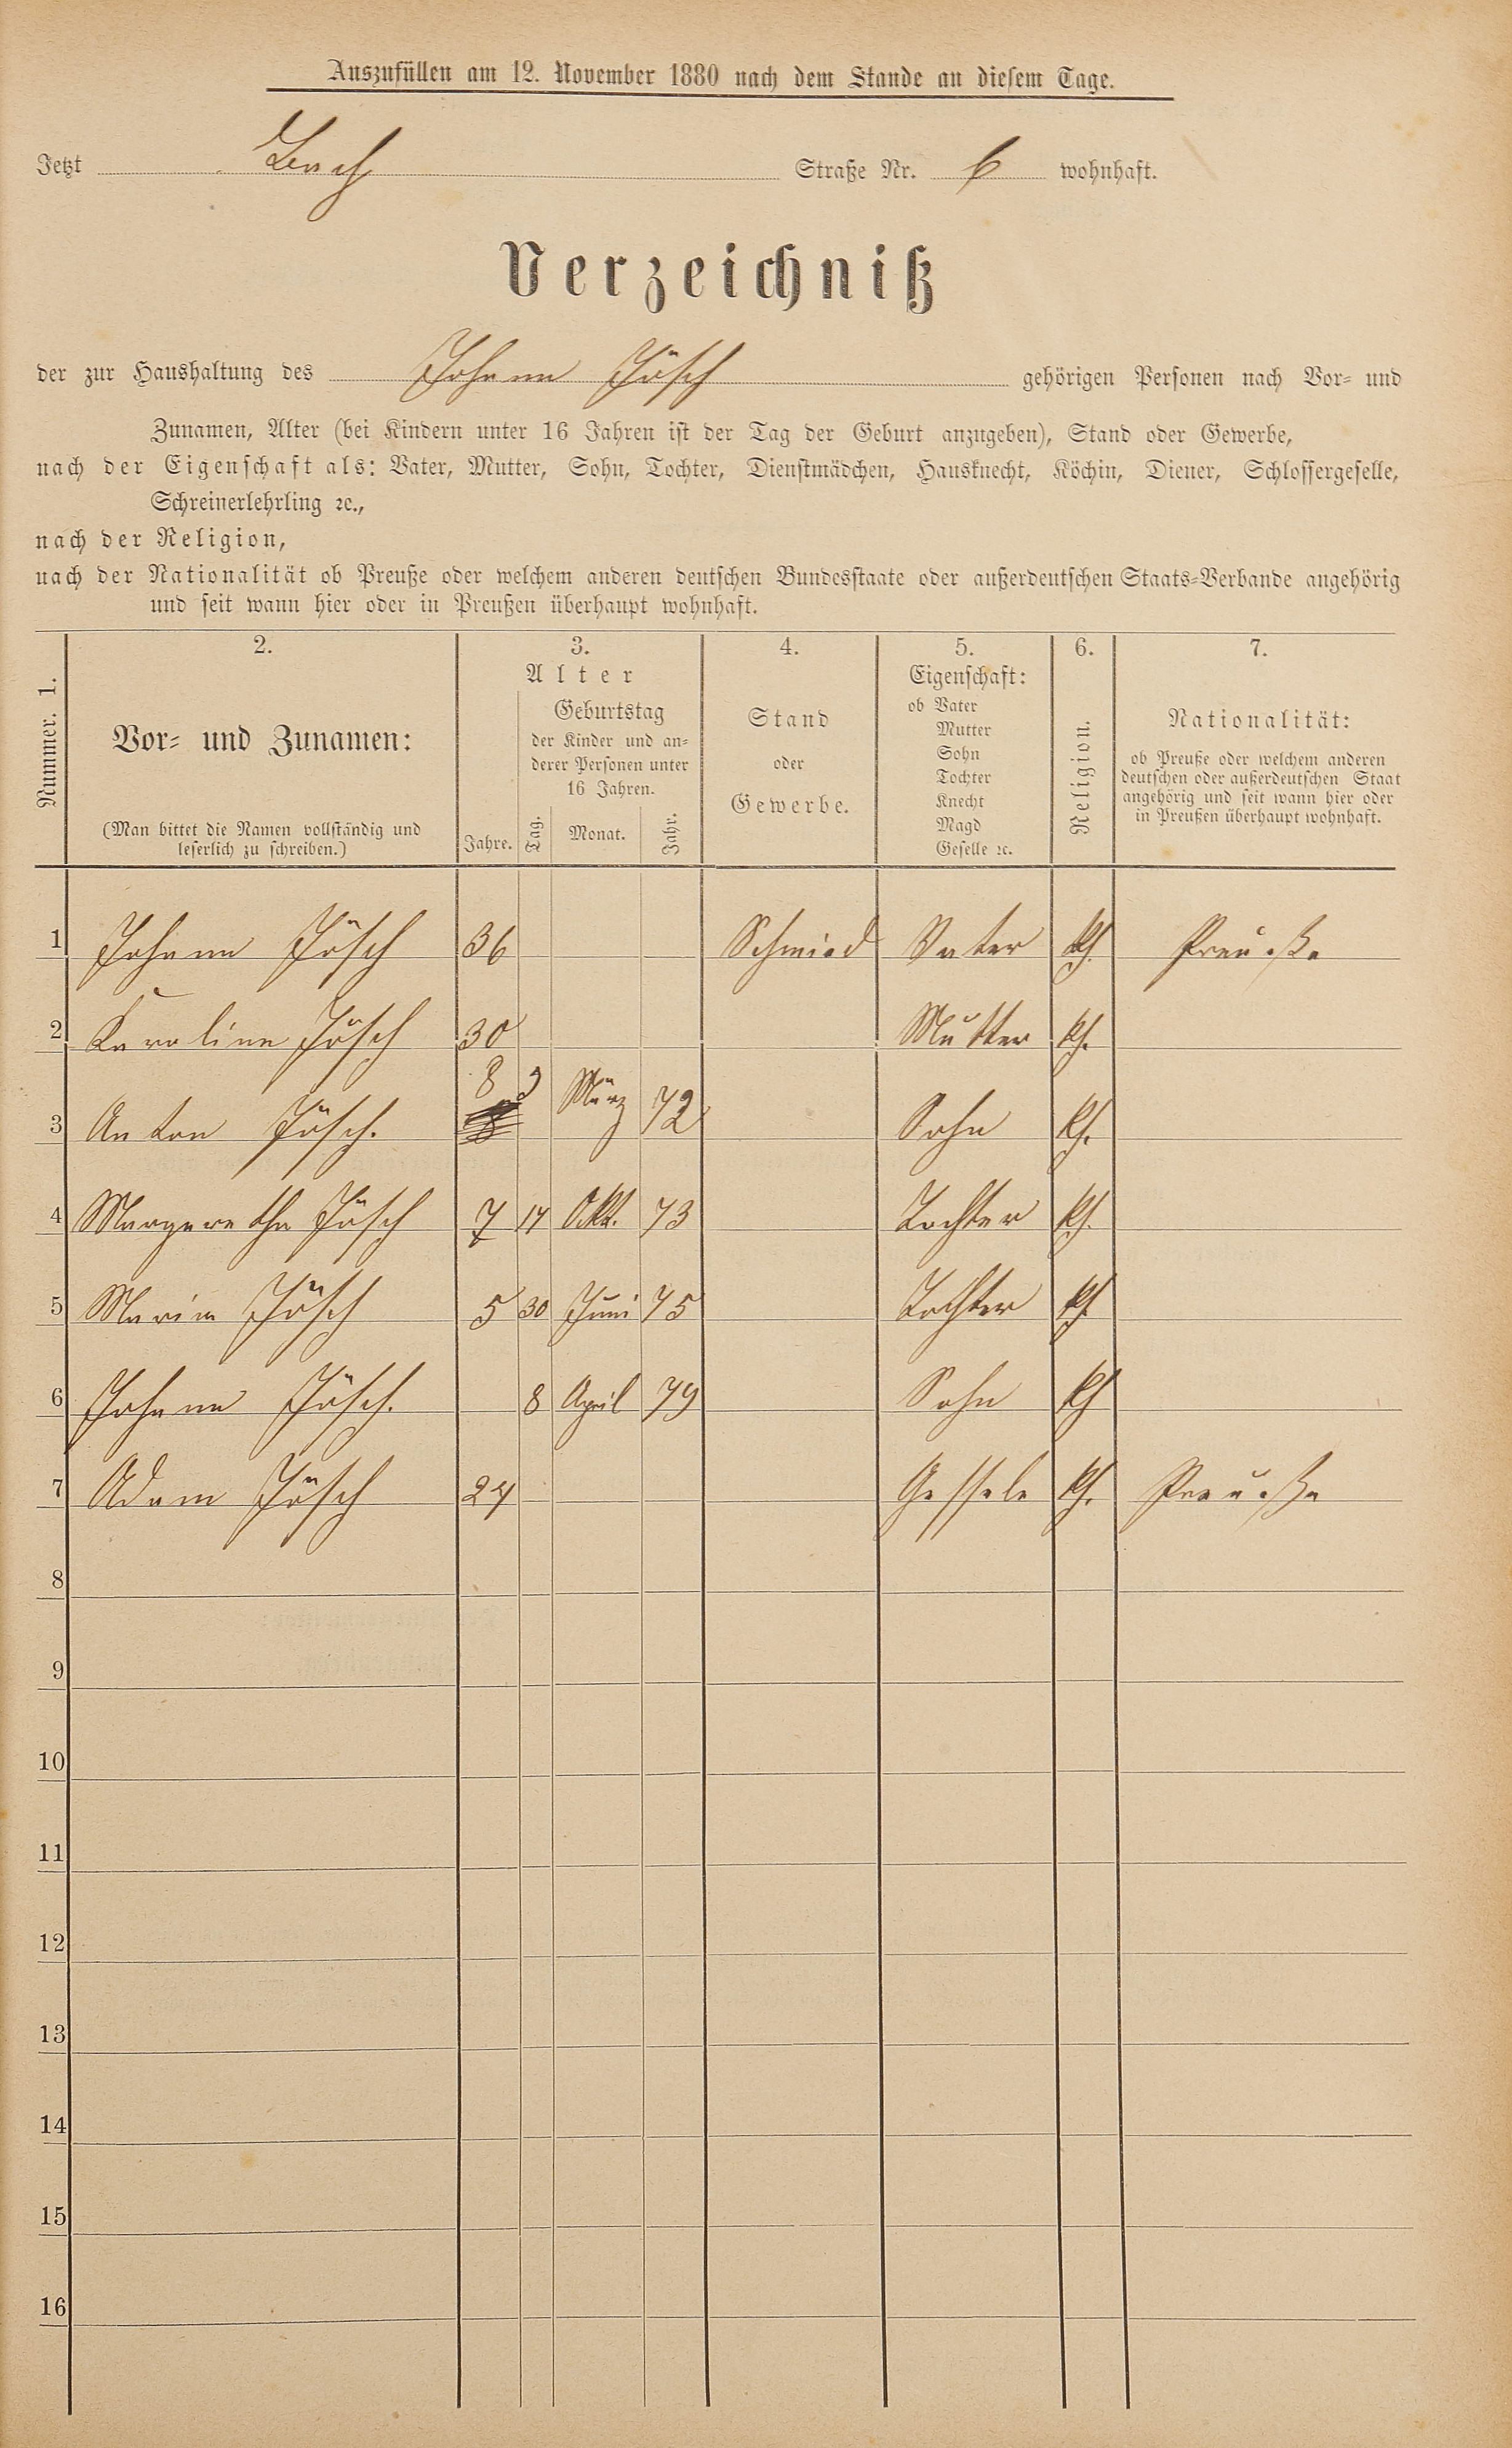 Auszufüllen am 12. November 1880 nach dem Stande an diesem Tage.
Jetzt Bach Straße Nr. 6 wohnhaft.
Verzeichniß
der zur Haushaltung des Johann Jösch gehörigen Personen nach Vor- und
Zunamen, Alter (bei Kindern unter 16 Jahren ist der Tag der Geburt anzugeben), Stand oder Gewerbe,
nach der Eigenschaft als: Vater, Mutter, Sohn, Tochter, Dienstmädchen, Hausknecht, Köchin, Diener, Schlossergeselle,
Schreinerlehrling ꝛc.,
nach der Religion,
nach der Nationalität ob Preuße oder welchem anderen deutschen Bundesstaate oder außerdeutschen Staats-Verbande angehörig
und seit wann hier oder in Preußen überhaupt wohnhaft.
Nummer. 1.
2.
Vor- und Zunamen:
(Man bittet die Namen vollständig und
leserlich zu schreiben.)
3.
Alter
Jahre.
Geburtstag
der Kinder und an-
derer Personen unter
16 Jahren.
Tag. Monat. Jahr.
4.
Stand
oder
Gewerbe.
5.
Eigenschaft:
ob Vater
Mutter
Sohn
Tochter
Knecht
Magd
Geselle ꝛc.
6.
Religion.
7.
Nationalität:
ob Preuße oder welchem anderen
deutschen oder außerdeutschen Staat
angehörig und seit wann hier oder
in Preußen überhaupt wohnhaft.
1 Johann Jösch 36 Schmied Vater kth. Preuße
2 Karoline Jösch 30 Mutter kth.
3 Anton Jösch. 8 2 März 72 Sohn kth.
4 Margaretha Jösch 7 17 Okt. 73 Tochter kth.
5 Maria Jösch 5 30 Juni 75 Tochter kth.
6 Johann Jösch. 8 April 79 Sohn kth
7 Adam Jösch 24 Gessele kth. Preuße
8
9
10
11
12
13
14
15
16